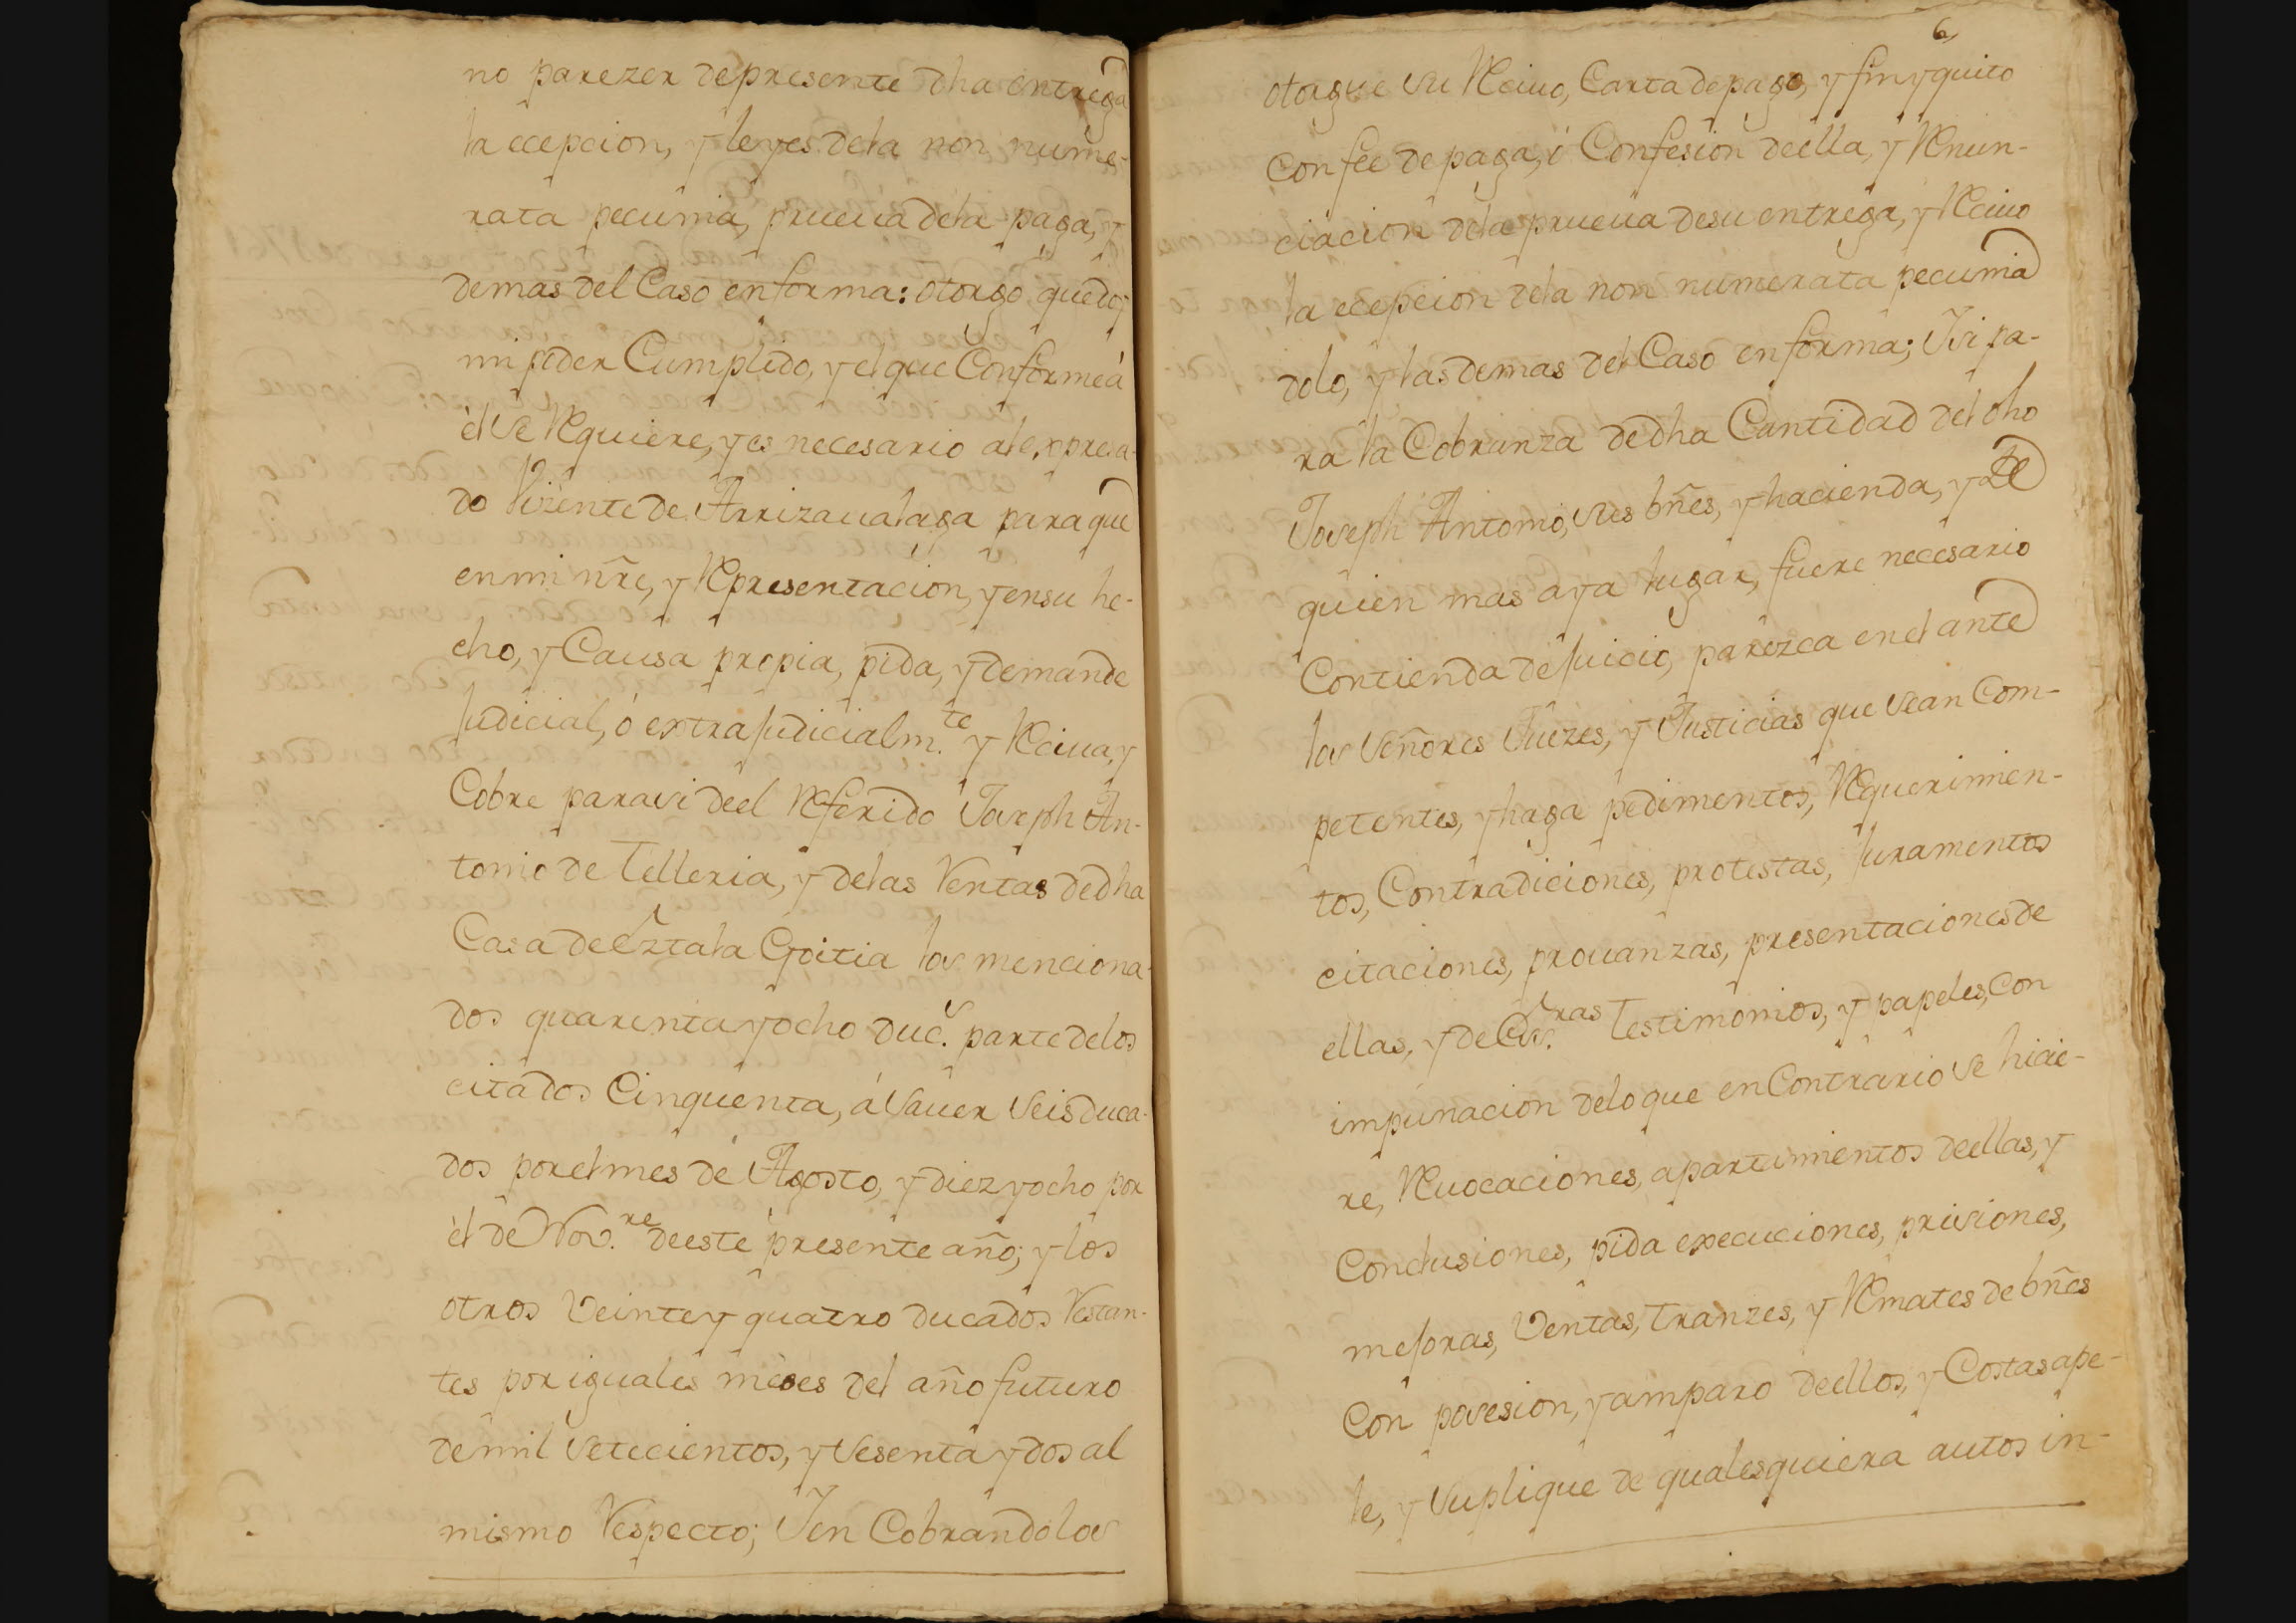 no parezer depresente dha entrega
la ecepcion, y leyes dela non nume-
rata pecunia, prueua dela paga, y
demas del Caso enforma: otorgo, quedoy
mi poder Cumplido, y el que Conforme à
èl se Requiere, y es necesario al expresa-
do Vizente de Arrizaualaga para que
en mi nr̃e, y Representacion, y ensu he-
cho, y Causa propia, pida, y demande
Judicial, ó extraJudicialm.te y Reciua, y
Cobre parasi deel Referido Joseph An-
tonio de Telleria, y delas Rentas dedha
Casa de Eztala Goitia los menciona-
dos quarenta y ocho duc.s parte delos
citados Cinquenta, á Sauer seis duca-
dos porel mes de Agosto, y diez y ocho por
èl de Nov.re deeste presente año; y los
otros Veinte y quatro ducados Restan-
tes por iguales meses del año futuro
de mil setecientos, y sesenta y dos al
mismo Respecto; Y en Cobrandolos
6
otorgue su Reciuo, Carta de pago, y fin y quito
Con fee de paga, ò Confesion deella, y Renun-
ciacion dela prueua desu entrega, y Reciuo
la ecepcion dela non numerata pecunia
dolo, y las demas del Caso en forma; Y si pa-
ra la Cobranza dedha Cantidad del dho
Joseph Antonio, sus bñes, y hacienda, y de
quien mas aya lugar, fuere necesario
Contienda de Juicio, parezca en el ante
los Señores Juezes, y Justicias que sean Com-
petentes, y haga pedimentos, Requerimien-
tos, Contradiciones, protestas, Juramentos
citaciones, prouanzas, presentaciones de
ellas, y de Ess.ras Testimonios, y papeles, Con
impunacion delo que en Contrario se hicie-
re, Reuocaciones, apartamientos deellas, y
Conclusiones, pida execuciones, prisiones,
meJoras, Ventas, Tranzes, y Remates de bñes
Con posesion, y amparo deellos, y Costas ape-
le, y Suplique de qualesquiera autos in-